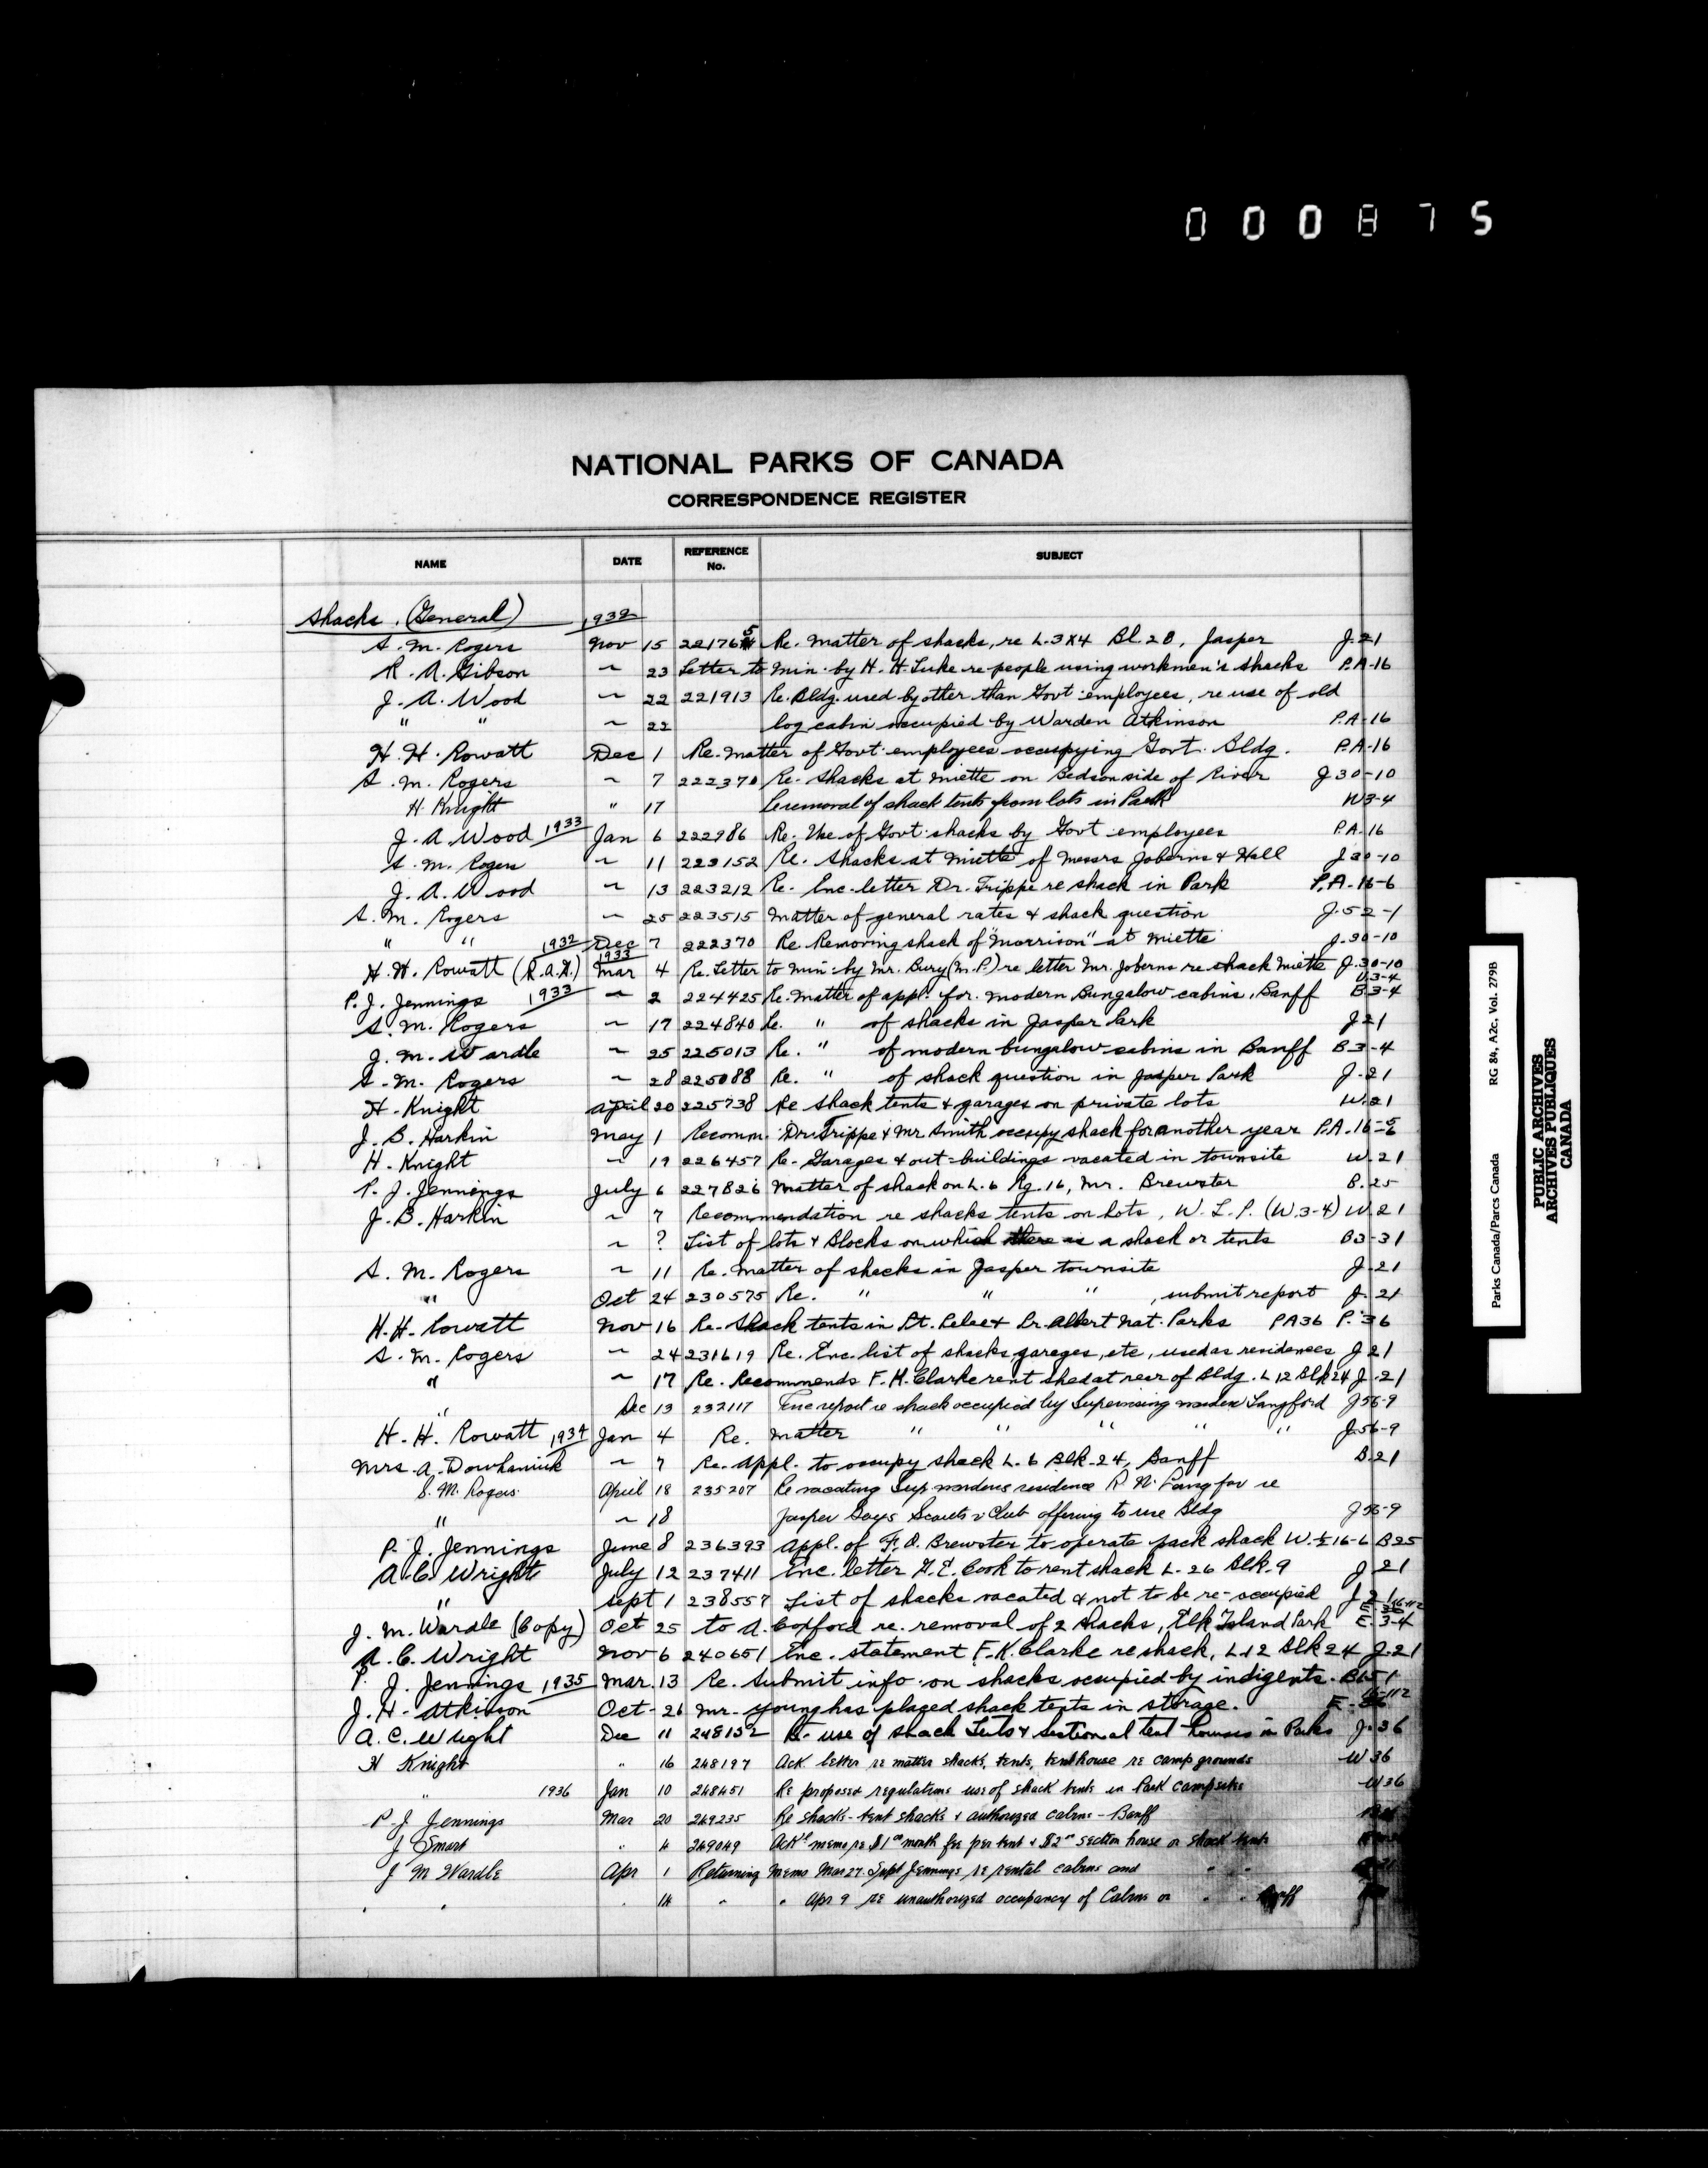 000875
NATIONAL PARKS OF CANADA
CORRESPONDENCE REGISTER
NAME DATE REFERENCE No. SUBJECT
Shacks. (General) 1932
S. M. Rogers Nov 15 221765 Re. Matter of shacks, re L. 3 & 4 Bl. 28, Jasper J.21
R. A. Gibson ~ 23 Letter to Min. by H. H. Luke re people using workmen's shacks P.A-16
J. A. Wood ~ 22 221913 Re. Bldg. used by other than Govt. employees, re use of old
" " ~ 22 log cabin occupied by Warden Atkinson P.A-16
H. H. Rowatt Dec 1 Re. Matter of Govt. employees occupying Govt. Bldg. P.A-16
S. M. Rogers ~ 7 222370 Re. Shacks at Miette on Bedson side of River J 30-10
H. Knight " 17 removal of shack tents from lots in Park W3-4
J. A. Wood 1933 Jan 6 222986 Re. Use of Govt. shacks by Govt. employees P.A-16
S. M. Rogers ~ 11 223152 Re. Shacks at Miette of Messrs Joberns & Hall J 30-10
J. A. Wood ~ 13 223212 Re. Enc. letter Dr. Trippe re shack in Park P.A.-16-6
S. M. Rogers ~ 25 223515 Matter of general rates & shack question J-52-1
" " 1932 Dec 7 222370 Re Removing shack of "Morrison" at Miette J-30-10
H. H. Rowatt (R.A.G.) 1933 Mar 4 Re. Letter to Min. by Mr. Bury (M.P.) re letter Mr. Joberns re shack Miette J.30-10
P. J. Jennings 1933 ~ 2 224425 Re. Matter of appl. for modern Bungalow cabins, Banff B3-4
S. M. Rogers ~ 17 224840 Re. " of shacks in Jasper Park J21
J. M. Wardle ~ 25 225013 Re. " of modern bungalow-cabins in Banff B3-4
S. M. Rogers ~ 28 225088 Re. " of shack question in Jasper Park J-21
H. Knight April 20 225738 Re Shack tents & garages on private lots W.21
J. B. Harkin May 1 Recomm. Dr. Trippe & Mr Smith occupy shack for another year P.A.-16-6
H. Knight ~ 19 226457 Re. Garages & out-buildings vacated in townsite W.21
P. J. Jennings July 6 227826 Matter of shack on L. 6 Pg. 16, Mr. Brewster B.25
J. B. Harkin ~ 7 Recommendation re shacks tents on lots, W. L. P. (W.3-4) W.21
~ ? List of lots & Blocks on which there is a shack or tents B3-31
S. M. Rogers ~ 11 Re. Matter of shacks in Jasper townsite J-21
" Oct 24 230575 Re. " " " , submit report J. 21
H. H. Rowatt Nov 16 Re. Shack tents in Pt. Pelee & Pr. Albert Nat. Parks PA36 P. 36
S. M. Rogers ~ 24 231619 Re. Enc. list of shacks, garages, etc, used as residences J 21
" ~ 17 Re. Recommends F. H. Clarke rent shed at rear of Bldg. L 12 Blk 24 J.21
" Dec 13 232117 Enc report re shack occupied by Supervising warden Langford J56-9
H. H. Rowatt 1934 Jan 4 Re. Matter " " " " " J.56-9
Mrs. A. Dowhaniuk ~ 7 Re. Appl. to occupy shack L. 6 Blk-24, Banff B.21
S. M. Rogers April 18 235207 Re vacating Sup wardens residence
" ~ 18 Jasper Boys Scouts & Club offering to use Bldg J56-9
P. J. Jennings June 8 236393 Appl. of F. O. Brewster to operate pack shack W. ½ 16-6 B25
A. C. Wright July 12 237411 Enc. letter G. E. Cook to rent shack L. 26 Blk. 9 J 21
" Sept 1 238557 List of shacks vacated & not to be re-occupied J 21
J. M. Wardle (Copy) Oct 25 to A. Coxford re. removal of 2 shacks, Elk Island Park E-3-4
A. C. Wright Nov 6 240651 Enc. statement F. H. Clarke re shack, L.12 Blk 24 J.21
P. J. Jennings 1935 Mar. 13 Re. Submit info. on shacks occupied by indigents.
J. H. Atkinson Oct- 26 Mr. Young has placed shack tents in storage.
A. C. Wright Dec 11 248152 Re use of shack Tents & Sectional tent houses in Parks J.36
H Knight " 16 248197 Ack. letter re matter shacks, tents, tenthouse re camp grounds W36
" 1936 Jan 10 248451 Re proposed regulations use of shack tents in Park campsites W36
P J Jennings Mar 20 249235 Re shacks-tent shacks & authorized cabins - Banff
J Smart " 4 249049 Ack'g memo re $1 00 month fee per tent & $2 00 section house or shack tents
J M Wardle Apr 1 Returning Memo Mar 27 Supt Jennings re rental cabins and " "
" " " 14 " " Apr 9 re unauthorized occupancy of Cabins or " " Banff
Parks Canada/Parcs Canada RG 84, A2c, Vol. 279B
PUBLIC ARCHIVES
ARCHIVES PUBLIQUES
CANADA